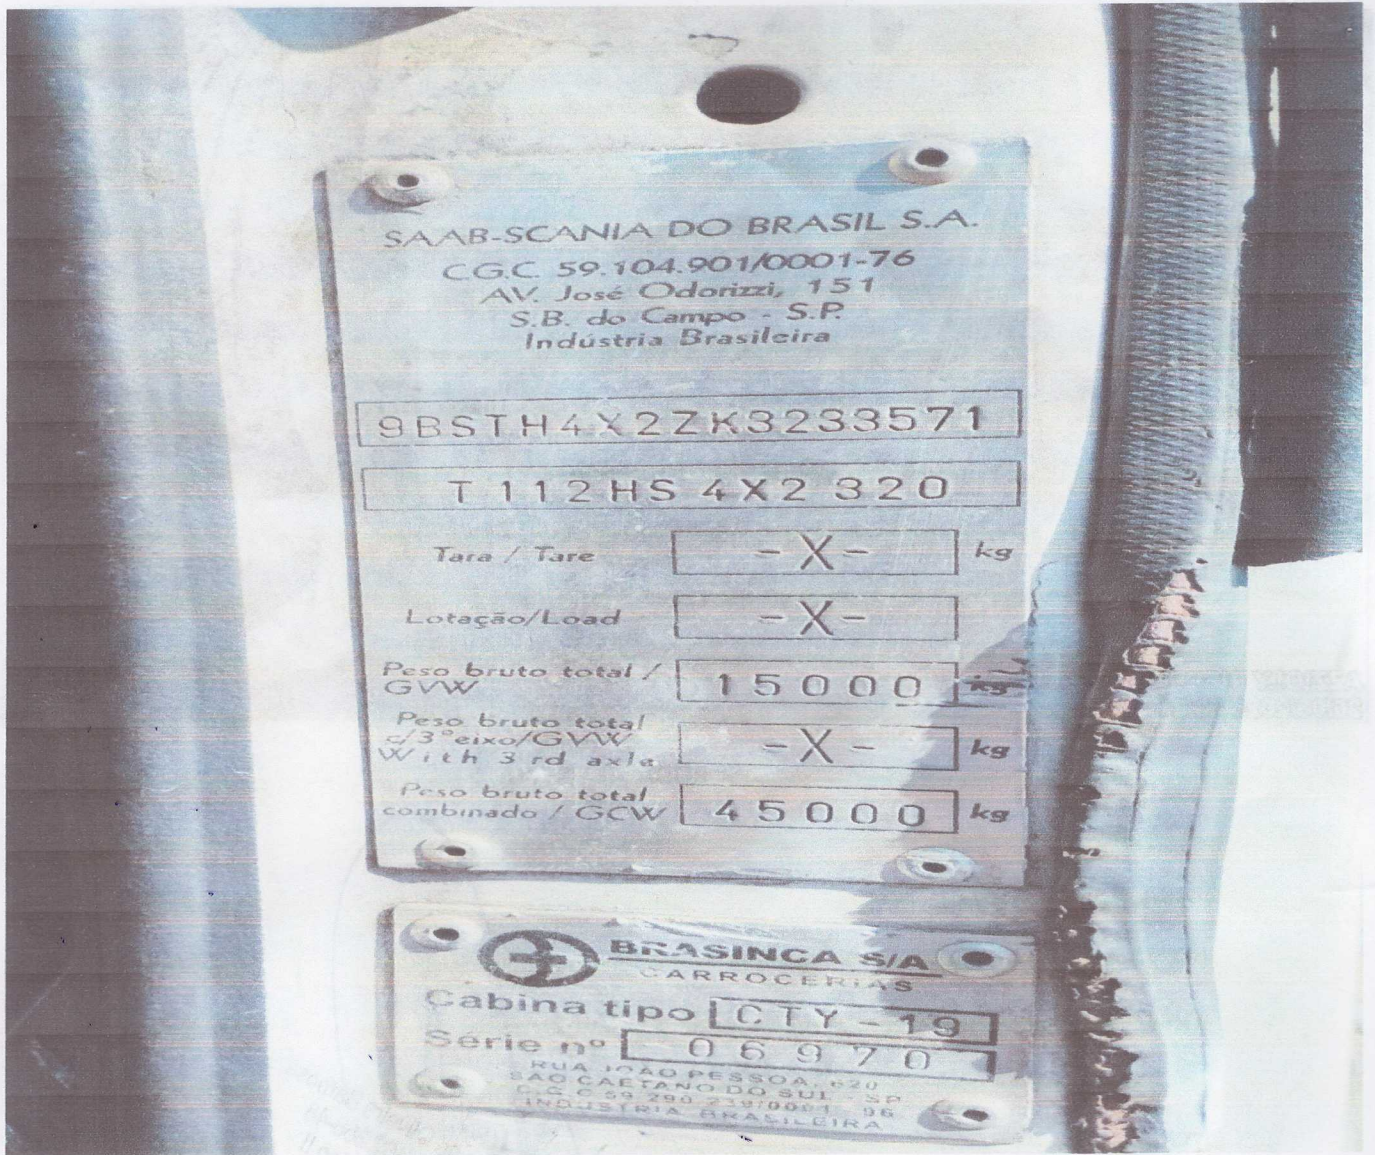 SAAB-SCANIA DO BRASIL S.A.
C.G.C. 59.104.901/0001-76
AV. José Odorizzi, 151
S.B. do Campo - S.P.
Indústria Brasileira
9BSTH4X2ZK3233571
T112HS 4X2 320
Tara / Tare -X- kg
Lotação/Load -X-
Peso bruto total /
GVW 15000 kg
Peso bruto total
c/3°eixo/GVW
With 3 rd axle -X- kg
Peso bruto total
combinado / GCW 45000 kg
BRASINCA S/A
CARROCERIAS
Cabina tipo CTY-19
Série nº 06970
RUA JOÃO PESSOA, 620
SÃO CAETANO DO SUL - SP
C.G.C 59 290 239/0001 - 96
INDÚSTRIA BRASILEIRA